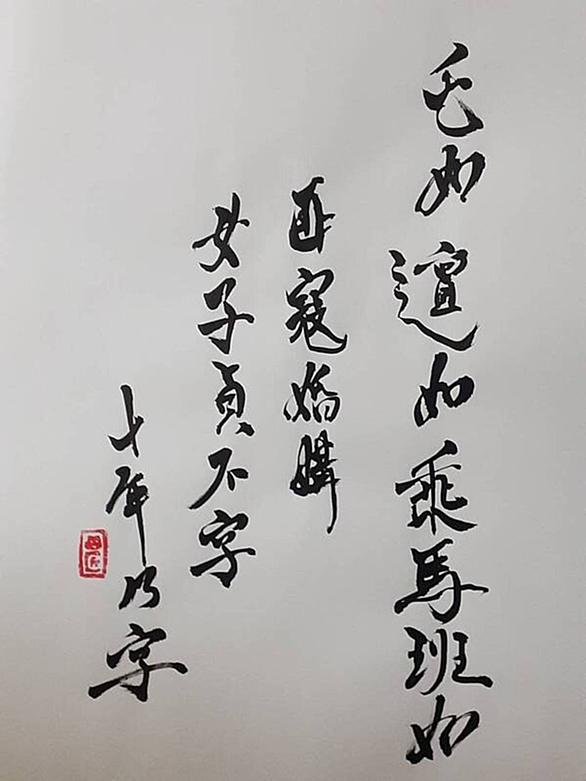 屯如邅如乘馬班如
匪寇婚媾
女子貞不字
十年乃字